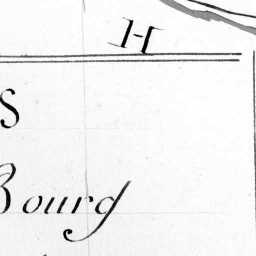 H
s
Bourg